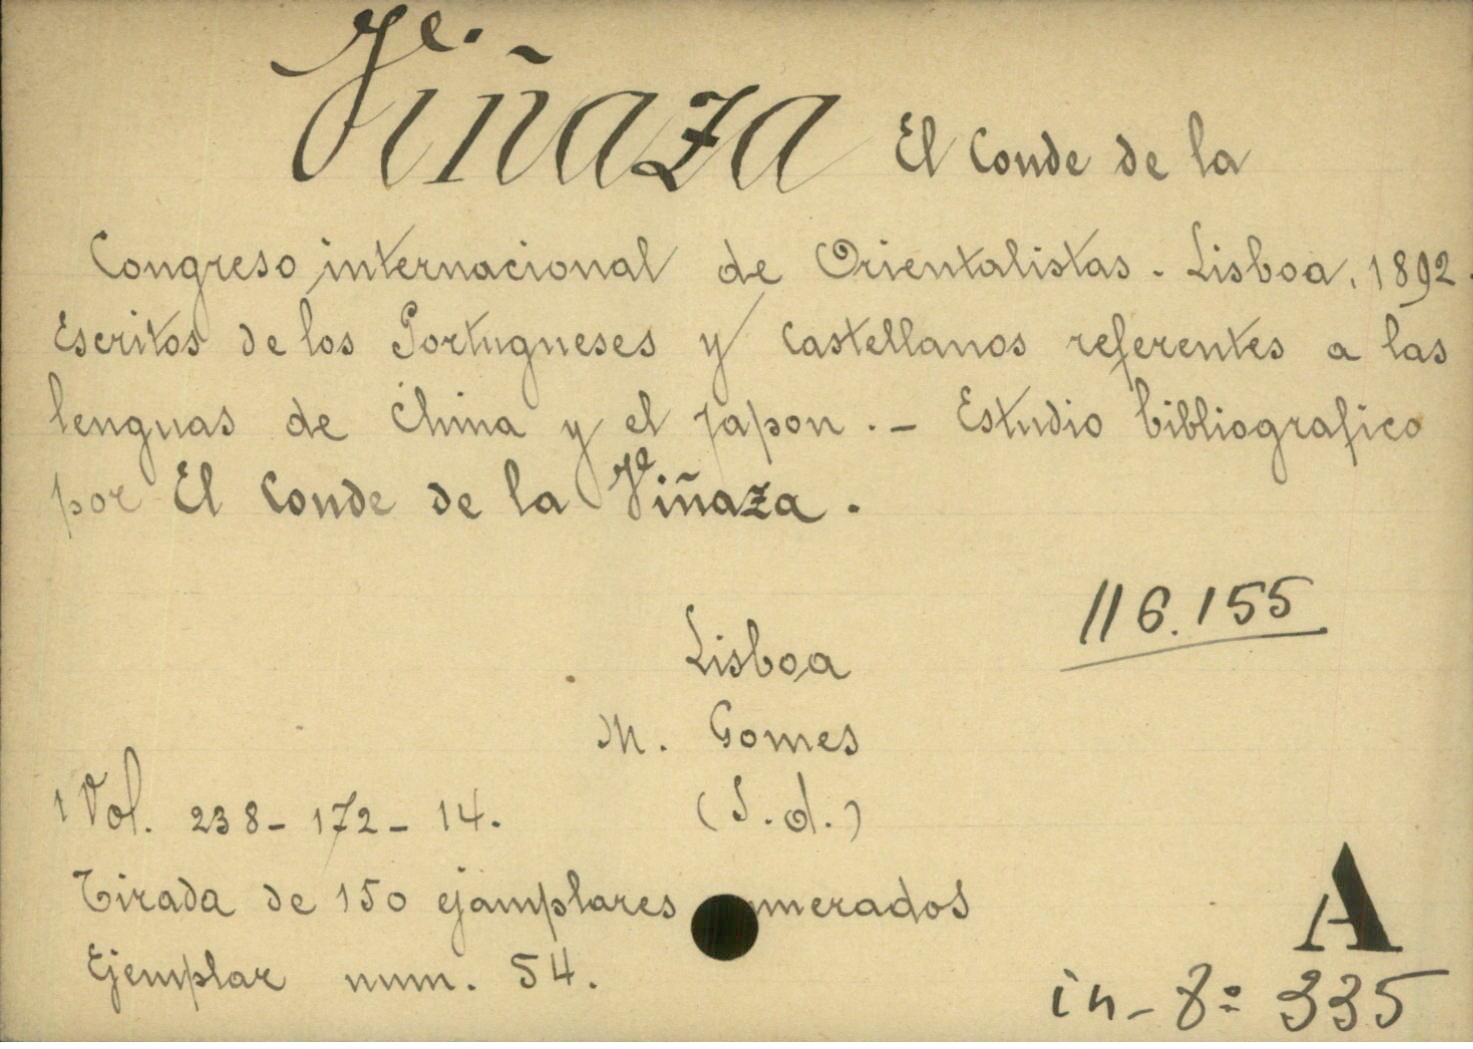 Viñaza El Conde de la
Congreso internacional de Orientalistas. Lisboa, 1892.
Escritos de los Portugueses y Castellanos referentes a las
lenguas de China y el Japon. - Estudio bibliografico
por El Conde de la Viñaza.
116.155
Lisboa
M. Gomes
(S.d.)
1 Vol. 238- 172- 14.
Tirada de 150 ejamplares numerados
Ejemplar num. 54.
A
in-8º 335